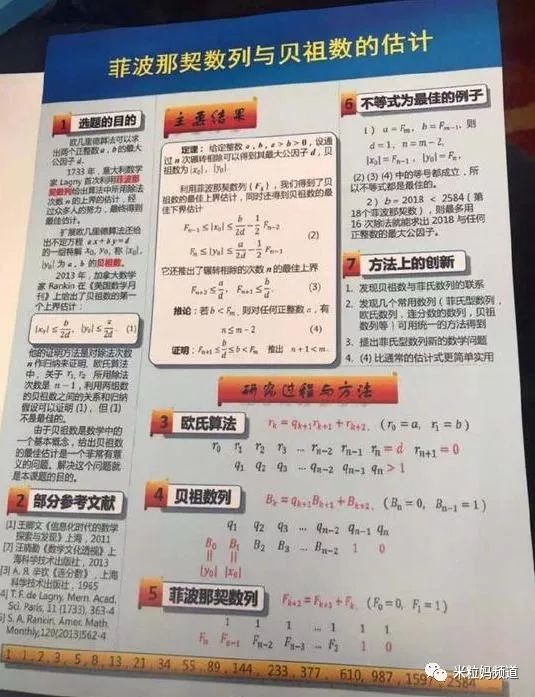 菲波那契数列与贝祖数的估计
1 选题的目的
欧几里德算法可以求
出两个正整数 a, b 的最大
公因子 d.
1733 年，意大利数学
家 Lagny 首次利用菲波那
契数列给出算法中所用除法
次数 n 的上界的估计，经
过众多人的努力，最终得到
最佳估计。
扩展欧几里德算法还给
出不定方程 ax+by=d
的一组特解 x₀, y₀, 称 |x₀|,
|y₀| 为 a, b 的贝祖数。
2013 年，加拿大数学
家 Rankin 在《美国数学月
刊》上给出了贝祖数的第一
个上界估计：
|x₀| ≤ b/2d, |y₀| ≤ a/2d. (1)
他的证明方法是对除法次数
n 作归纳来证明. 欧氏算法
中，关于 r₁, r₂ 所用除法
次数是 n − 1，利用两组数
的贝祖数之间的关系和归纳
假设可以证明 (1)，但 (1)
不是最佳的。
由于贝祖数是数学中的
一个基本概念，给出贝祖数
的最佳估计是一个非常有意
义的问题。解决这个问题就
是本课题的目的。
2 部分参考文献
[1] 王卿文《信息化时代的数学
探索与发现》上海，2011
[2] 汪晓勤《数学文化透视》上
海科学技术出版社，2013
[3] A. 辛钦《连分数》，上海
科学技术出版社，1965
[4] T. F. de Lagny, Mem. Acad.
Sci. Paris, 11 (1733), 363-4
[5] S. A. Rankin, Amer. Math.
Monthly,120(2013)562-4
主要结果
定理：给定整数 a, b, a > b > 0，设通
过 n 次辗转相除可以得到其最大公因子 d，贝
祖数为 |x₀|, |y₀|.
利用菲波那契数列 {Fₖ}，我们得到了贝
祖数的最佳上界估计，同时还得到贝祖数的最
佳下界估计
Fₙ₋₁ ≤ |x₀| ≤ b/2d − 1/2 Fₙ₋₂
(2)
Fₙ ≤ |y₀| ≤ a/2d − 1/2 Fₙ₋₁
它还推出了辗转相除的次数 n 的最佳上界
Fₙ₊₂ ≤ a/d, Fₙ₊₁ ≤ b/d. (3)
推论：若 b < Fₘ, 则对任何正整数 a，有
n ≤ m − 2 (4)
证明：Fₙ₊₁ ≤ b/d ≤ b < Fₘ 推出 n + 1 < m.
6 不等式为最佳的例子
1) a = Fₘ, b = Fₘ₋₁, 则
d = 1, n = m − 2,
|x₀| = Fₙ₋₁, |y₀| = Fₙ.
(2) (3) (4) 中的等号都成立，所
以不等式都是最佳的。
2) b = 2018 < 2584 (第
18个菲波那契数)，则最多用
16 次除法就能求出 2018 与任何
正整数的最大公因子。
7 方法上的创新
1. 发现贝祖数与菲氏数列的联系
2. 发现几个常用数列 (菲氏型数列，
欧氏数列，连分数的数列，贝祖
数列等) 可用统一的方法得到
3. 提出菲氏型数列新的数学问题
4. (4) 比通常的估计式更简单实用
研究过程与方法
3 欧氏算法 rₖ = qₖ₊₁rₖ₊₁ + rₖ₊₂, (r₀ = a, r₁ = b)
r₀ r₁ r₂ r₃ ... rₙ₋₂ rₙ₋₁ rₙ = d rₙ₊₁ = 0
q₁ q₂ q₃ ... qₙ₋₂ qₙ₋₁ qₙ > 1
4 贝祖数列 Bₖ = qₖ₊₁Bₖ₊₁ + Bₖ₊₂, (Bₙ = 0, Bₙ₋₁ = 1)
q₁ q₂ q₃ ... qₙ₋₂ qₙ₋₁ qₙ
B₀ B₁ B₂ B₃ ... Bₙ₋₂ 1 0
|| ||
|y₀| |x₀|
5 菲波那契数列 Fₖ₊₂ = Fₖ₊₁ + Fₖ, (F₀ = 0, F₁ = 1)
1 1 1 ... 1 1 1
Fₙ Fₙ₋₁ Fₙ₋₂ Fₙ₋₃ ... F₂ 1 0
1, 1, 2, 3, 5, 8, 13, 21, 34, 55, 89, 144, 233, 377, 610, 987, 1597, 2584
米粒妈频道